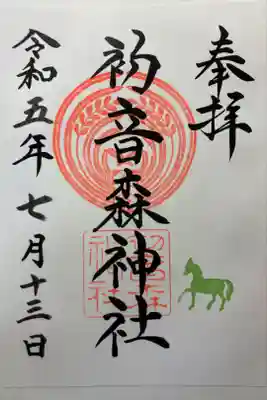 奉拝
初音森神社
令和五年七月十三日
初音森
神社